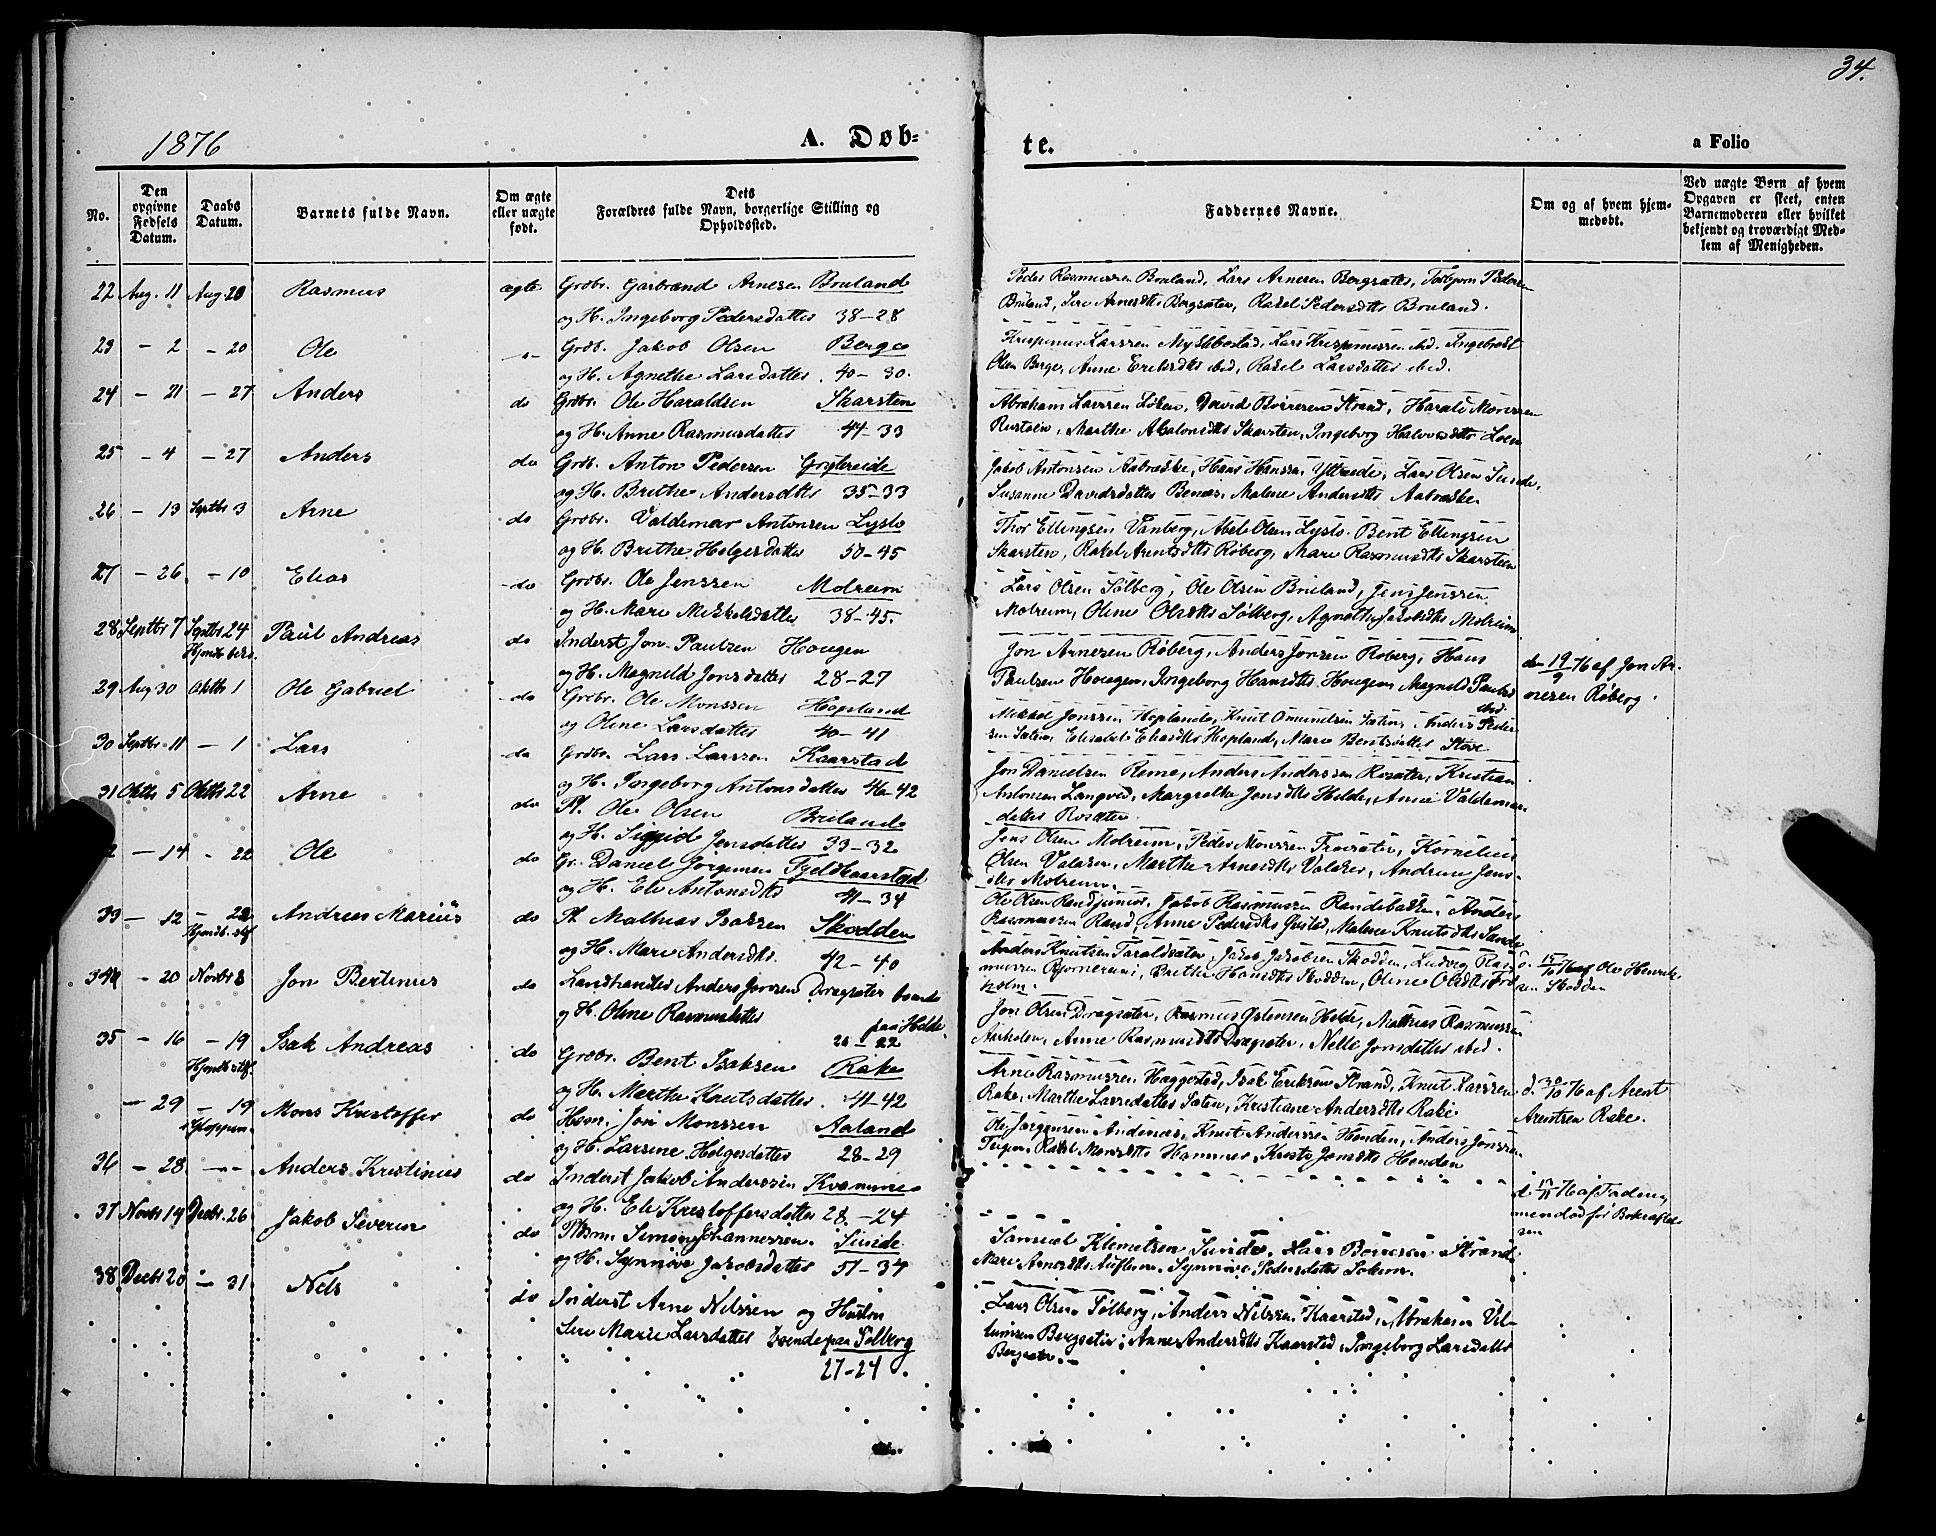 34.
1876
A. Døb-
te.
a Folio
No.
Den opgivne Fødsels Datum.
Daabs Datum.
Barnets fulde Navn.
Om ægte eller uægte født.
Dets Forældres fulde Navn, borgerlige Stilling og Opholdssted.
Faddernes Navne.
Om og af hvem hjemmedøbt.
Ved uægte Børn af hvem Opgaven er skeet, enten Barnemoderen eller hvilket bekjendt og troværdigt Medlem af Menigheden.
22 Aug. 11 Aug. 20 Rasmus ægte Grdbr. Garbrand Arnesen Bruland
og H. Ingeborg Pedersdatter 38-28
Peder Rasmussen Bruland, Lars Arnesen Bergsæter, Torbjørn Pedersen
Bruland, Siri Arnesdtr Bergsæter, Rakel Pedersdtr Bruland.
23 - 2 - 20 Ole Grdbr. Jakob Olsen Berge
og H. Agnethe Larsdatter 40-30.
Krispinus Larssen Myklebostad, Lars Krispinussen ibid. Ingebrigt
Olsen Berge, Anne Eriksdtr ibid, Rakel Larsdatter ibid.
24 - 21 - 27 Anders do Grdbr. Ole Haraldsen Skarsten
og H. Anne Rasmusdatter 44-33
Abraham Larssen Løken, David Børresen Strand, Harald Monssen
Rusteen, Marthe Absalonsdtr Skarsten, Ingeborg Halvorsdtr Loen
25 - 4 - 27 Anders do Grdb. Anton Pedersen Grytereide
og H. Brithe Andersdtr 35-33
Jakob Antonsen Aabrække, Hans Hanssen Yttreeide, Lars Olsen Sunde,
Susanne Davidsdatter Benæs, Malene Andersdtr Aabrække.
26 - 13 Septbr 3 Arne do Grdbr. Valdemar Antonsen Lyslo
og H. Brithe Helgesdatter 50-45
Thor Ellingsen Vanberg, Abel Olsen Lyslo. Bent Ellingsen
Skarsten, Rakel Arentsdtr Røberg, Mari Rasmusdtr Skarsteen
27 - 26 - 10 Elias do Grdbr. Ole Jenssen Molreim
og H. Mari Mikkelsdatter 38-45.
Lars Olsen Solberg, Ole Olsen Bruland, Jens Jenssen
Molreim, Oline Olsdtr Solberg, Agnethe Jakobsdtr Molreim
28 Septbr 7 Septbr 24 Paul Andreas do Inderst Jon Paulsen Hougen
Hjmdb. bekr.
og H. Magnild Jonsdatter 28-27
Jon Arnesen Røberg, Anders Jonsen Røberg, Hans
Paulsen Hougen, Ingeborg Hansdtr Hougen, Magnild Paulsd.
ibid
den 19/9 76 af Jon Ar-
nesen Røberg.
29 Aug 30 Oktbr 1 Ole Gabriel do Grdbr. Ole Monssen Hopland
og Oline Larsdatter 40-41
Mikkel Jonssen Hopland, Knut Omundsen Sæten, Anders Peder-
sen Sæten, Elisabet Eliasdtr Hopland, Mari Bentsdatter Støve
30 Septbr 11 - 1 Lars do Grdbr. Lars Larssen Kaarstad
og H. Ingeborg Antonsdatter 46-42
Jon Danielsen Reme, Anders Anderssen Rosæter, Kristian
Antonsen Langved, Margrethe Jensdtr Hilde, Anne Valdemars-
datter Rosæter
31 Oktbr 5 Oktbr 22 Arne do Pl. Ole Olsen Bruland
og H. Sigrid Jensdatter 33-32
Jens Olsen Molreim, Peder Monssen Frøisæter, Kornelius
Olsen Valaker, Marthe Arnesdtr Valaker, Andrine Jens-
dtr Molreim.
2 - 14 - 22 Ole do Gr. Daniel Jørgensen Fjeldkaarstad
og H. Eli Antonsdtr 41-34
Ole Olsen Rand junior, Jakob Rasmussen Randebakken, Anders
Rasmussen Rand, Anne Pedersdtr Gustad, Malene Knutsdtr Sunde
33 - 12 - 22 Andreas Marius do Pl. Mathias Isaksen Skodden
Hjmdb. stf.
og H. Mari Andersdtr. 42-40
Anders Knutsen Taraldsæter, Jakob Jakobsen Skodden, Ludvig Ras-
mussen Bjørnereim, Brithe Hansdtr Skodden, Oline Olsdtr Fris-
holm.
d. 15/10 76 af Ole Henrik-
sen Skodden
34 - 20 Novbr 8 Jon Bertinus do Landhandler Anders Jonssen Dragsæter boende
og H. Oline Rasmusdatter paa Hilde.
28-22
Jon Olsen Dragsæter, Rasmus Østensen Hilde, Mathias Rasmussen
Aarholen, Anne Rasmusdtr Dragsæter, Nelli Jonsdatter ibid.
35 - 16 - 19 Isak Andreas do Grdbr. Bent Isaksen Rake
Hjmdb. stf.
og H. Marthe Knutsdatter. 41-42
Arne Rasmussen Heggestad, Isak Eriksen Strand, Knut Larssen
Rake, Marthe Larsdatter Sæten, Kristiane Andersdtr Rake
d. 30/10 76 af Arent
Arentsen Rake.
- 29 - 19 Mons Kristoffer do Hsm. Jon Monssen Aaland
i Gloppen
og H. Larsine Helgesdatter 28-29
Ole Jørgensen Andenæs, Knut Anderssen Henden, Anders Jonssen
Teigen, Rakel Monsdtr Hammer, Kristi Jonsdtr Henden
36 - 28 -"- Anders Kristinus do Inderst Jakob Anderssen Kvamme
og H. Eli Kristoffersdatter 28.-24
37 Novbr 19 Decbr. 26 Jakob Severin do Pl. Simon Johannessen. Sunde.
og H. Synnøve Jakobsdatter 51-34
Samuel Klemetsen Sunde, Lars Børresen Strand
Mari Arnesdtr Auflem, Synnøve Pedersdatter
38 Decbr 20 - 31 Nils do Inderst Arne Nilssen og Hustru
Siri Marie Larsdatter boende paa Solberg
27-24.
Lars Olsen Solberg, Anders Nilssen Kaarstad, Abraham Vil-
lumsen Bergsæter, Anne Andersdtr Kaarstad, Ingeborg Larsdatter
Bergsæter.